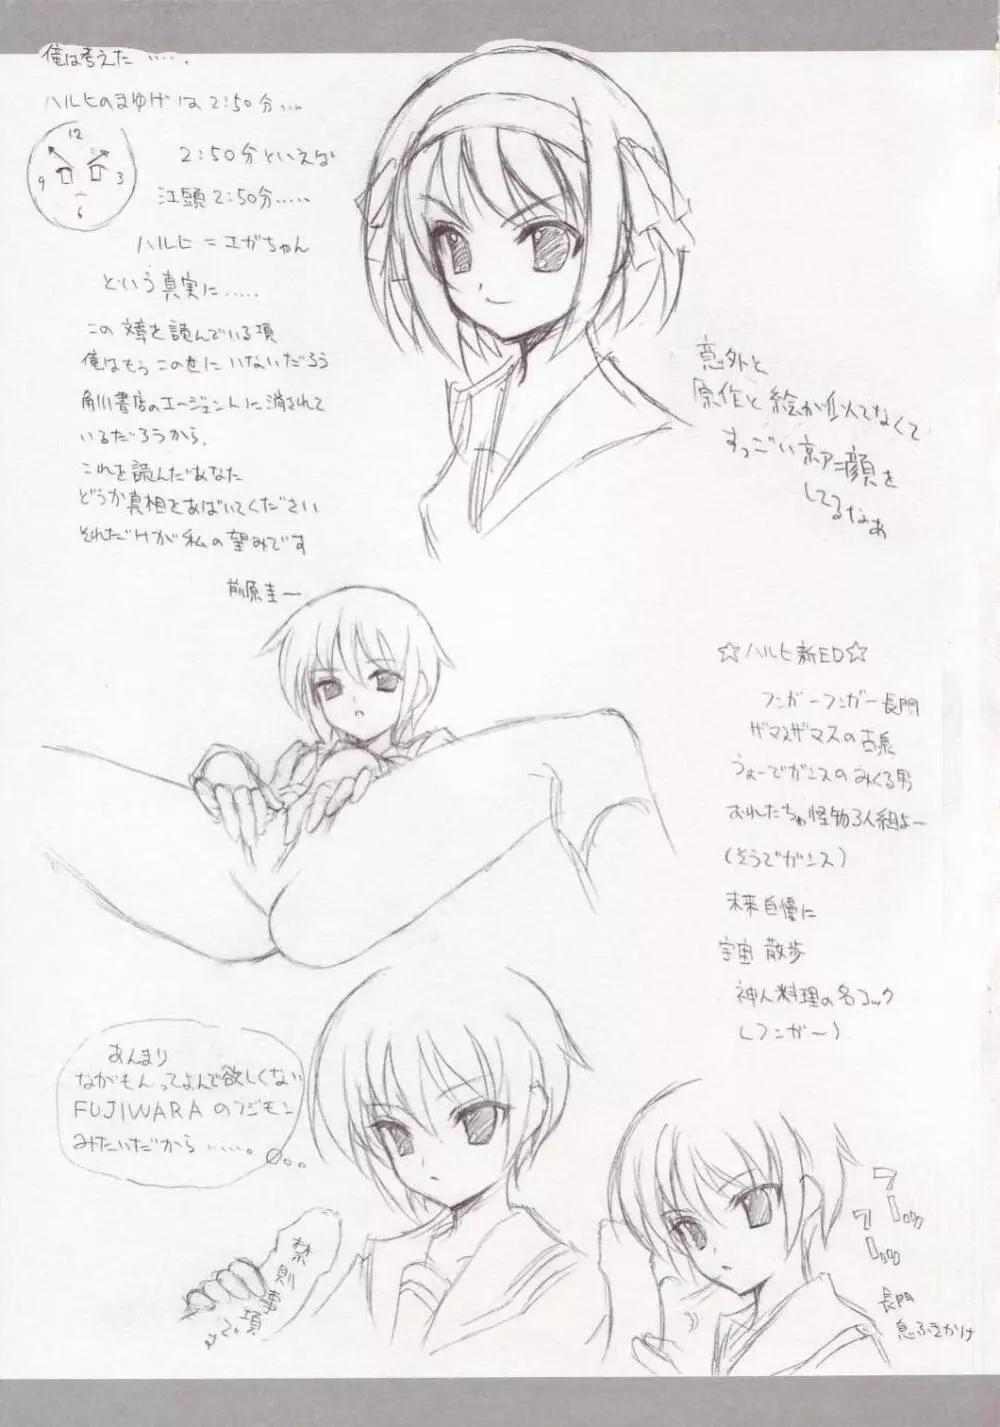 俺は考えた‥‥‥.
ハルヒのまゆげは2:50分‥‥
12
9
3
6
2:50分といえば
江頭2:50分‥‥‥
ハルヒ＝エガちゃん
という真実に‥‥‥
この文章を読んでいる項
俺はもうこの世にいないだろう
角川書店のエージェントに消されて
いるだろうから.
これを読んだあなた
どうか真相をあばいてください
それだけが私の望みです
前原圭一
意外と
原作と絵が似てなくて
すっごい京アニ顔を
してるなぁ
☆ハルヒ新ED☆
フンガーフンガー長門
ザマスザマスの古泉
うぉーでガンスのみくる男
おれたちゃ怪物3人組よー
(そうでガンス)
未来自慢に
宇宙散歩
神人料理の名コック
(フンガー)
あんまり
ながもんってよんで欲しくない
FUJIWARAのフジモン
みたいだから‥‥‥。
禁則事項
です
フーッ
フーッ
長門
息ふきかけ